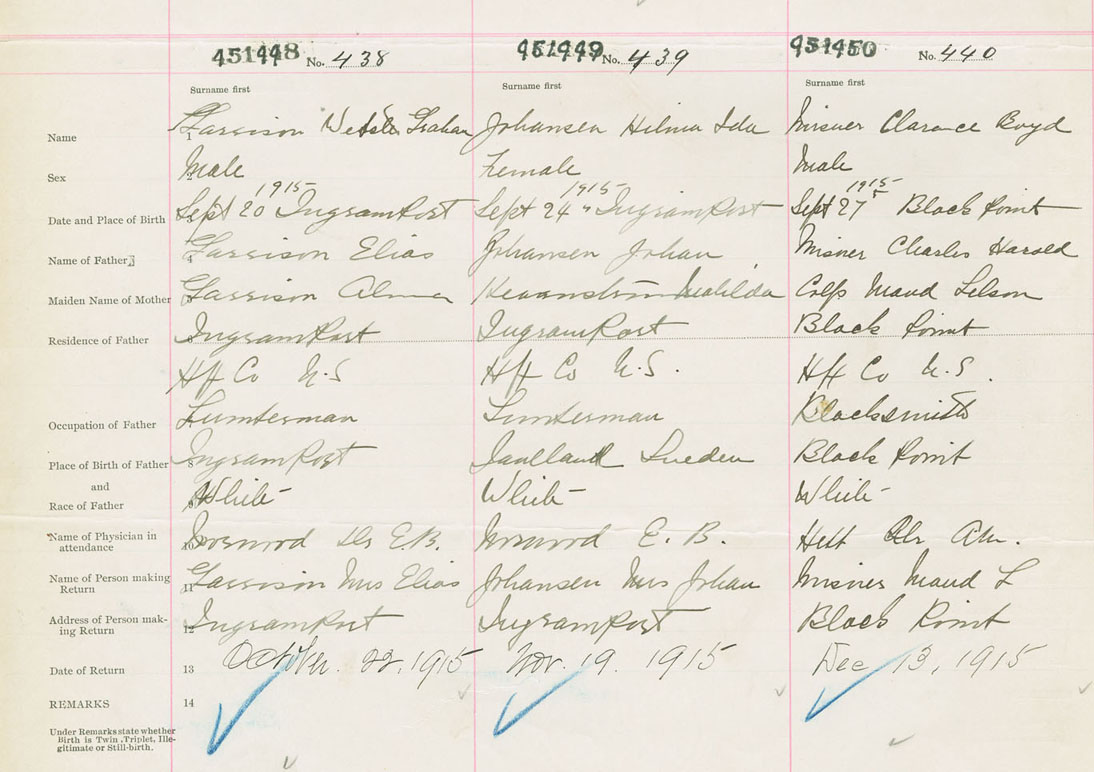 451448 No. 438 451449 No. 439 451450 No. 440
Surname first Surname first Surname first
Name 1 Garrison Graham Johansen Hilma Ida Misner Clarence Boyd
Sex 2 Male Female Male
1915 1915 1915
Date and Place of Birth 3 Sept 20 IngramPort Sept 24 " IngramPort Sept 27 " Black Point
Name of Father 4 Garrison Elias Johansen Johan Misner Charles Harold
Maiden Name of Mother Garrison Alma Matilda Maud
Residence of Father IngramPort IngramPort Black Point
Hfx Co N.S Hfx Co N.S. Hfx Co N.S.
Occupation of Father Lumberman Lumberman Blacksmith
Place of Birth of Father 8 IngramPort Sweden Black Point
and
Race of Father 9 White White White
Name of Physician in
attendance 10 Norwood Dr E.B. Norwood E. B. Dr
Name of Person making
Return 11 Garrison Mrs Elias Johansen Mrs Johan Misner Maud L
Address of Person mak-
ing Return 12 IngramPort IngramPort Black Point
Date of Return 13 October. 22, 1915 Nov. 19. 1915 Dec 13, 1915
REMARKS 14
Under Remarks state whether
Birth is Twin, Triplet, Ille-
gitimate or Still-birth.